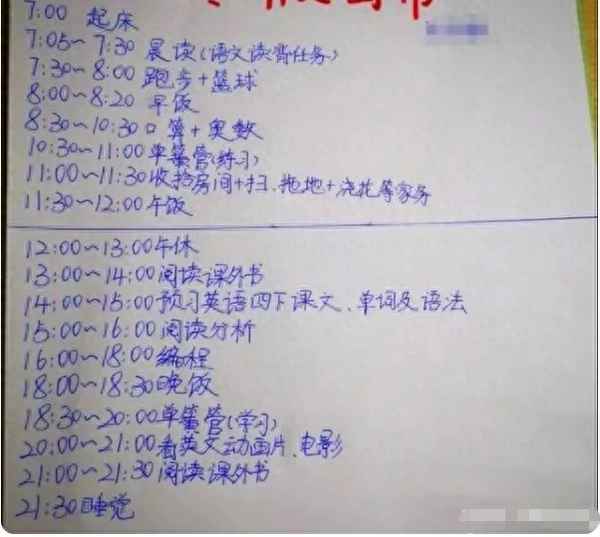 7:00 起床
7:05~7:30 晨读(语文读背任务)
7:30~8:00 跑步+篮球
8:00~8:20 早饭
8:30~10:30 口算+奥数
10:30~11:00 单簧管(练习)
11:00~11:30 收拾房间+扫、拖地+浇花等家务
11:30~12:00 午饭
12:00~13:00 午休
13:00~14:00 阅读课外书
14:00~15:00 预习英语四下课文、单词及语法
15:00~16:00 阅读分析
16:00~18:00 编程
18:00~18:30 晚饭
18:30~20:00 单簧管(学习)
20:00~21:00 看英文动画片、电影
21:00~21:30 阅读课外书
21:30 睡觉